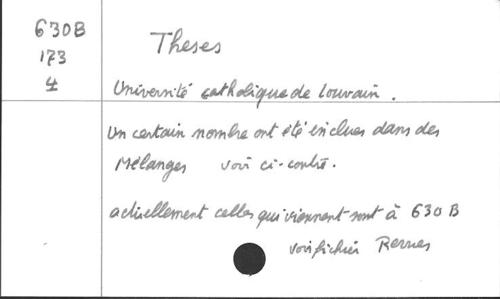 630B
173
4
Theses
Université catholique de Louvain.
Un certain nombre ont été inclues dans des
Mélanges voir ci-contre.
actuellement celles qui viennent sont à 630 B
voir fichier Revues